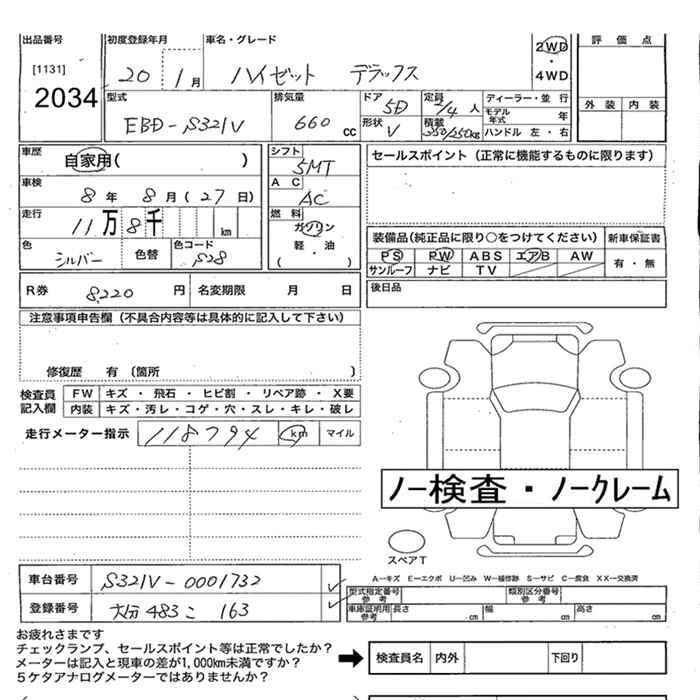 出品番号 初度登録年月 車名・グレード 評価点
[1131] 20 1月 ハイゼット デラックス 2WD・4WD
2034
外装 内装
型式 排気量 ドア 定員 ディーラー・並行
EBD-S321V 660cc 5D 2/4人 モデル年式 年
形状 V 積載 350/250kg ハンドル 左・右
車歴 自家用( ) シフト 5MT セールスポイント(正常に機能するものに限ります)
車検 8年 8月(27日) AC AC
走行 11万8千 km 燃料 ガソリン 軽・油 ( )
色 シルバー 色替 色コード S28
装備品(純正品に限り○をつけてください) 新車保証書
PS PW ABS エアB AW 有・無
サンルーフ ナビ TV
R券 8,220円 名変期限 月 日 後日品
注意事項申告欄(不具合内容等は具体的に記入して下さい)
修復歴 有(箇所 )
検査員記入欄 FW キズ・飛石・ヒビ割・リペア跡・X要
内装 キズ・汚レ・コゲ・穴・スレ・キレ・破レ
走行メーター指示 118794 km マイル
ノー検査・ノークレーム
スペアT
A−キズ E−エクボ U−凹み W−補修跡 S−サビ C−腐食 XX−交換済
車台番号 S321V-0001732 型式指定番号参考 類別区分番号参考
登録番号 大分 483 こ 163 車庫証明用参考 長さ cm 幅 cm 高さ cm
お疲れさまです
チェックランプ、セールスポイント等は正常でしたか?
メーターは記入と現車の差が1,000km未満ですか?
5ケタアナログメーターではありませんか?
検査員名 内外 下回り